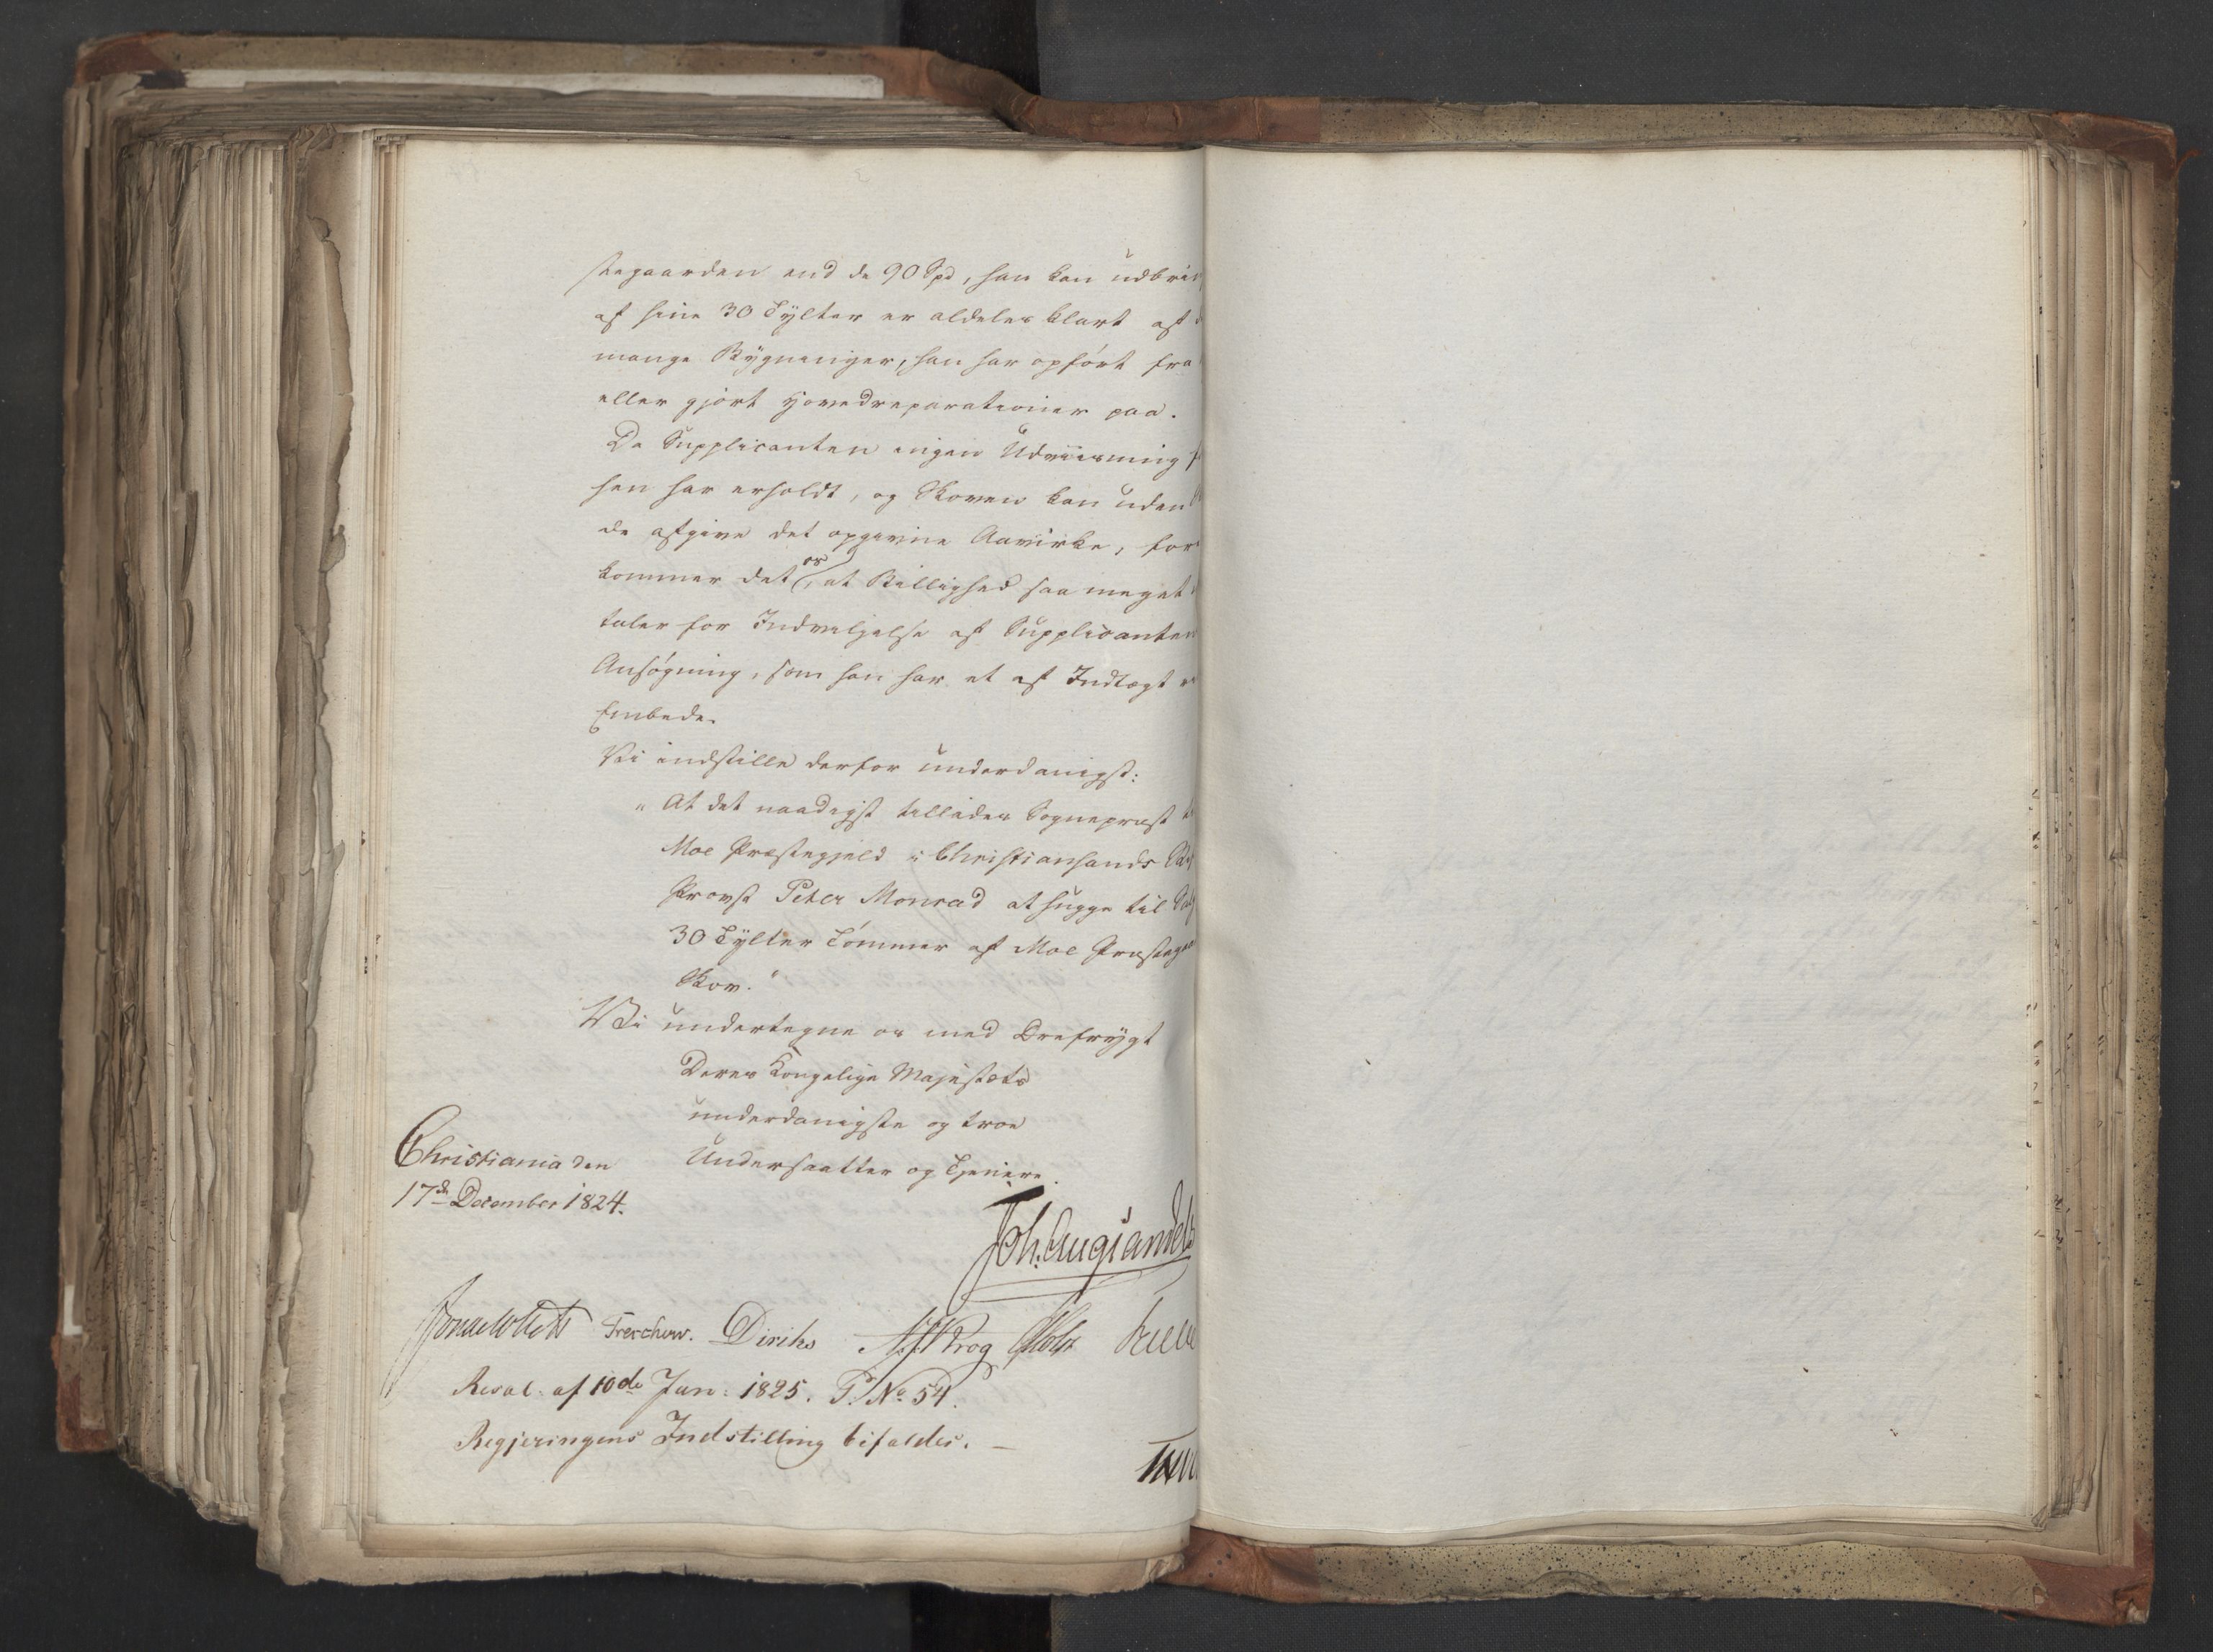 stegaarden end de 90 Spd, han kan udbrin
af sine 30 Tylter er aldeles klart af d
mange Bygninger, han har opført fra
eller gjort Hovedreparationer paa.
Da Supplicanten ingen Udviisning f
hen har erholdt, og Skoven kan uden
de afgive det opgivne Aavirke, fore
kommer det os, at Billighed saa meget
taler for Indvilgelse af Supplicanten
Ansøgning, som han har et af Indtægt
Embede.
Vi indstille derfor underdanigst:
" At det naadigst tillades Sognepræst
Moe Præstegjeld i Christiansands
Provst Peter Monrad at hugge til Salg
30 Tylter Tømmer af Moe Præstegaa
Skov."
Vi undertegne os med Ærefrygt
Deres Kongelige Majestæts
underdanigste og troe
Undersaatter og Tjenere.
Christiania den
17de December 1824.
Joh. Aug. Sandels
Jonas Collett Treschow. Diriks N. J. Krog Holst
Resol: af 10de Jan: 1825. P. No 54.
Regjeringens Indstilling bifaldes. —